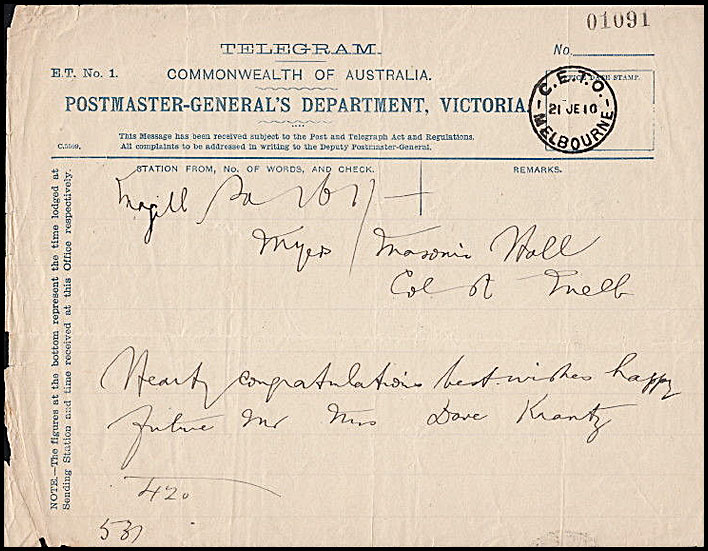 01091
TELEGRAM.
No.
E.T. No. 1.
COMMONWEALTH OF AUSTRALIA.
OFFICE DATE STAMP.
POSTMASTER-GENERAL'S DEPARTMENT, VICTORIA.
C.E.T.O.
21 JE 10
MELBOURNE
This Message has been received subject to the Post and Telegraph Act and Regulations.
C.5509.
All complaints to be addressed in writing to the Deputy Postmaster-General.
STATION FROM, No. OF WORDS, AND CHECK.
REMARKS.
Magill Sa
Myers Masonic Hall
Col St Melb
Hearty congratulations best wishes happy
future Mr Mrs Dave Krantz
420
531
NOTE.—The figures at the bottom represent the time lodged at
Sending Station and time received at this Office respectively.